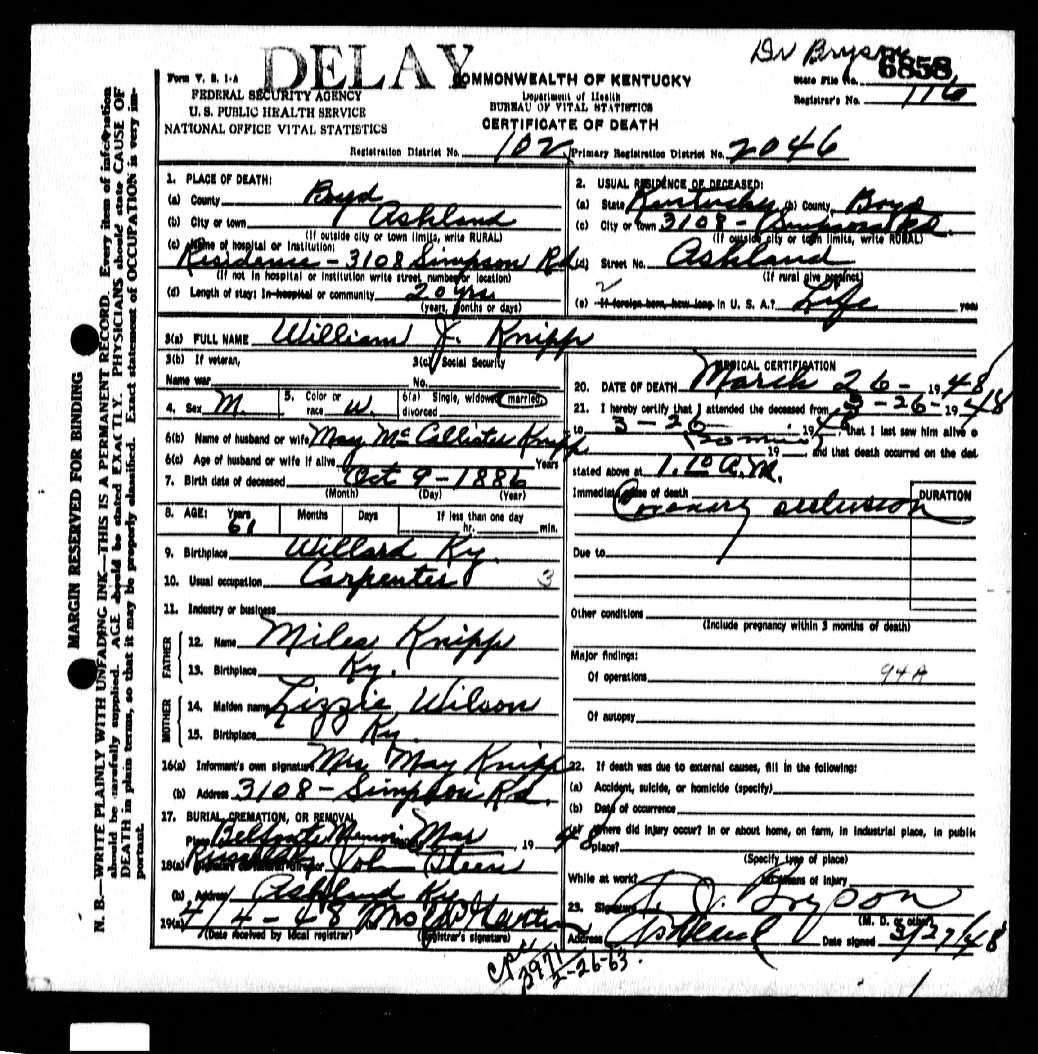 DELAY
Dr Bryson
Form V. S. 1-A
COMMONWEALTH OF KENTUCKY
State File No. 6858
FEDERAL SECURITY AGENCY
Department of Health
Registrar's No. 116
U. S. PUBLIC HEALTH SERVICE
BUREAU OF VITAL STATISTICS
NATIONAL OFFICE VITAL STATISTICS
CERTIFICATE OF DEATH
Registration District No. 102 Primary Registration District No. 2046
MARGIN RESERVED FOR BINDING
N. B.—WRITE PLAINLY WITH UNFADING INK—THIS IS A PERMANENT RECORD. Every item of information
should be carefully supplied. AGE should be stated EXACTLY. PHYSICIANS should state CAUSE OF
DEATH in plain terms, so that it may be properly classified. Exact statement of OCCUPATION is very im-
portant.
1. PLACE OF DEATH:
(a) County Boyd
(b) City or town Ashland
(If outside city or town limits, write RURAL)
(c) Name of hospital or institution:
Residence - 3108 Simpson Rd
(If not in hospital or institution write street number or location)
(d) Length of stay: In hospital or community 20 yrs
(years, months or days)
2. USUAL RESIDENCE OF DECEASED:
(a) State Kentucky (b) County Boyd
(c) City or town 3108 - Simpson Rd.
(If outside city or town limits, write RURAL)
(d) Street No. Ashland
(If rural give precinct)
(e) If foreign born, how long in U. S. A.? Life years
3(a) FULL NAME William J. Knipp
3(b) If veteran,
Name war
3(c) Social Security
No.
4. Sex M.
5. Color or
race W.
6(a) Single, widowed, married,
divorced
6(b) Name of husband or wife May McCallister Knipp
6(c) Age of husband or wife if alive Years
7. Birth date of deceased Oct 9 - 1886
(Month) (Day) (Year)
8. AGE: Years Months Days If less than one day
61 hr. min.
9. Birthplace Willard Ky.
10. Usual occupation Carpenter 3
11. Industry or business
FATHER
12. Name Miles Knipp
13. Birthplace Ky.
MOTHER
14. Maiden name Lizzie Wilson
15. Birthplace Ky.
16(a) Informant's own signature Mrs May Knipp
(b) Address 3108 - Simpson Rd.
17. BURIAL, CREMATION, OR REMOVAL
Place Mar 19 48
18(a) John Steen
(b) Address Ashland Ky
19(a) 4/4-48
(Date received by local registrar) (Registrar's signature)
MEDICAL CERTIFICATION
20. DATE OF DEATH March 26 - 1948
21. I hereby certify that I attended the deceased from 3-26- 1948
to 3-26 1948, that I last saw him alive o
19 , and that death occurred on the dat
stated above at 1:10 A.M.
Immediate cause of death
DURATION
Coronary occlusion
Due to
Other conditions
(Include pregnancy within 3 months of death)
Major findings:
Of operations 94A
Of autopsy
22. If death was due to external causes, fill in the following:
(a) Accident, suicide, or homicide (specify)
(b) Date of occurrence
Where did injury occur? In or about home, on farm, in industrial place, in public
place?
(Specify type of place)
While at work? Means of injury
23. Signature J. Bryson
(M. D. or other)
Address Ashland Date signed 3/27/48
2-26-63